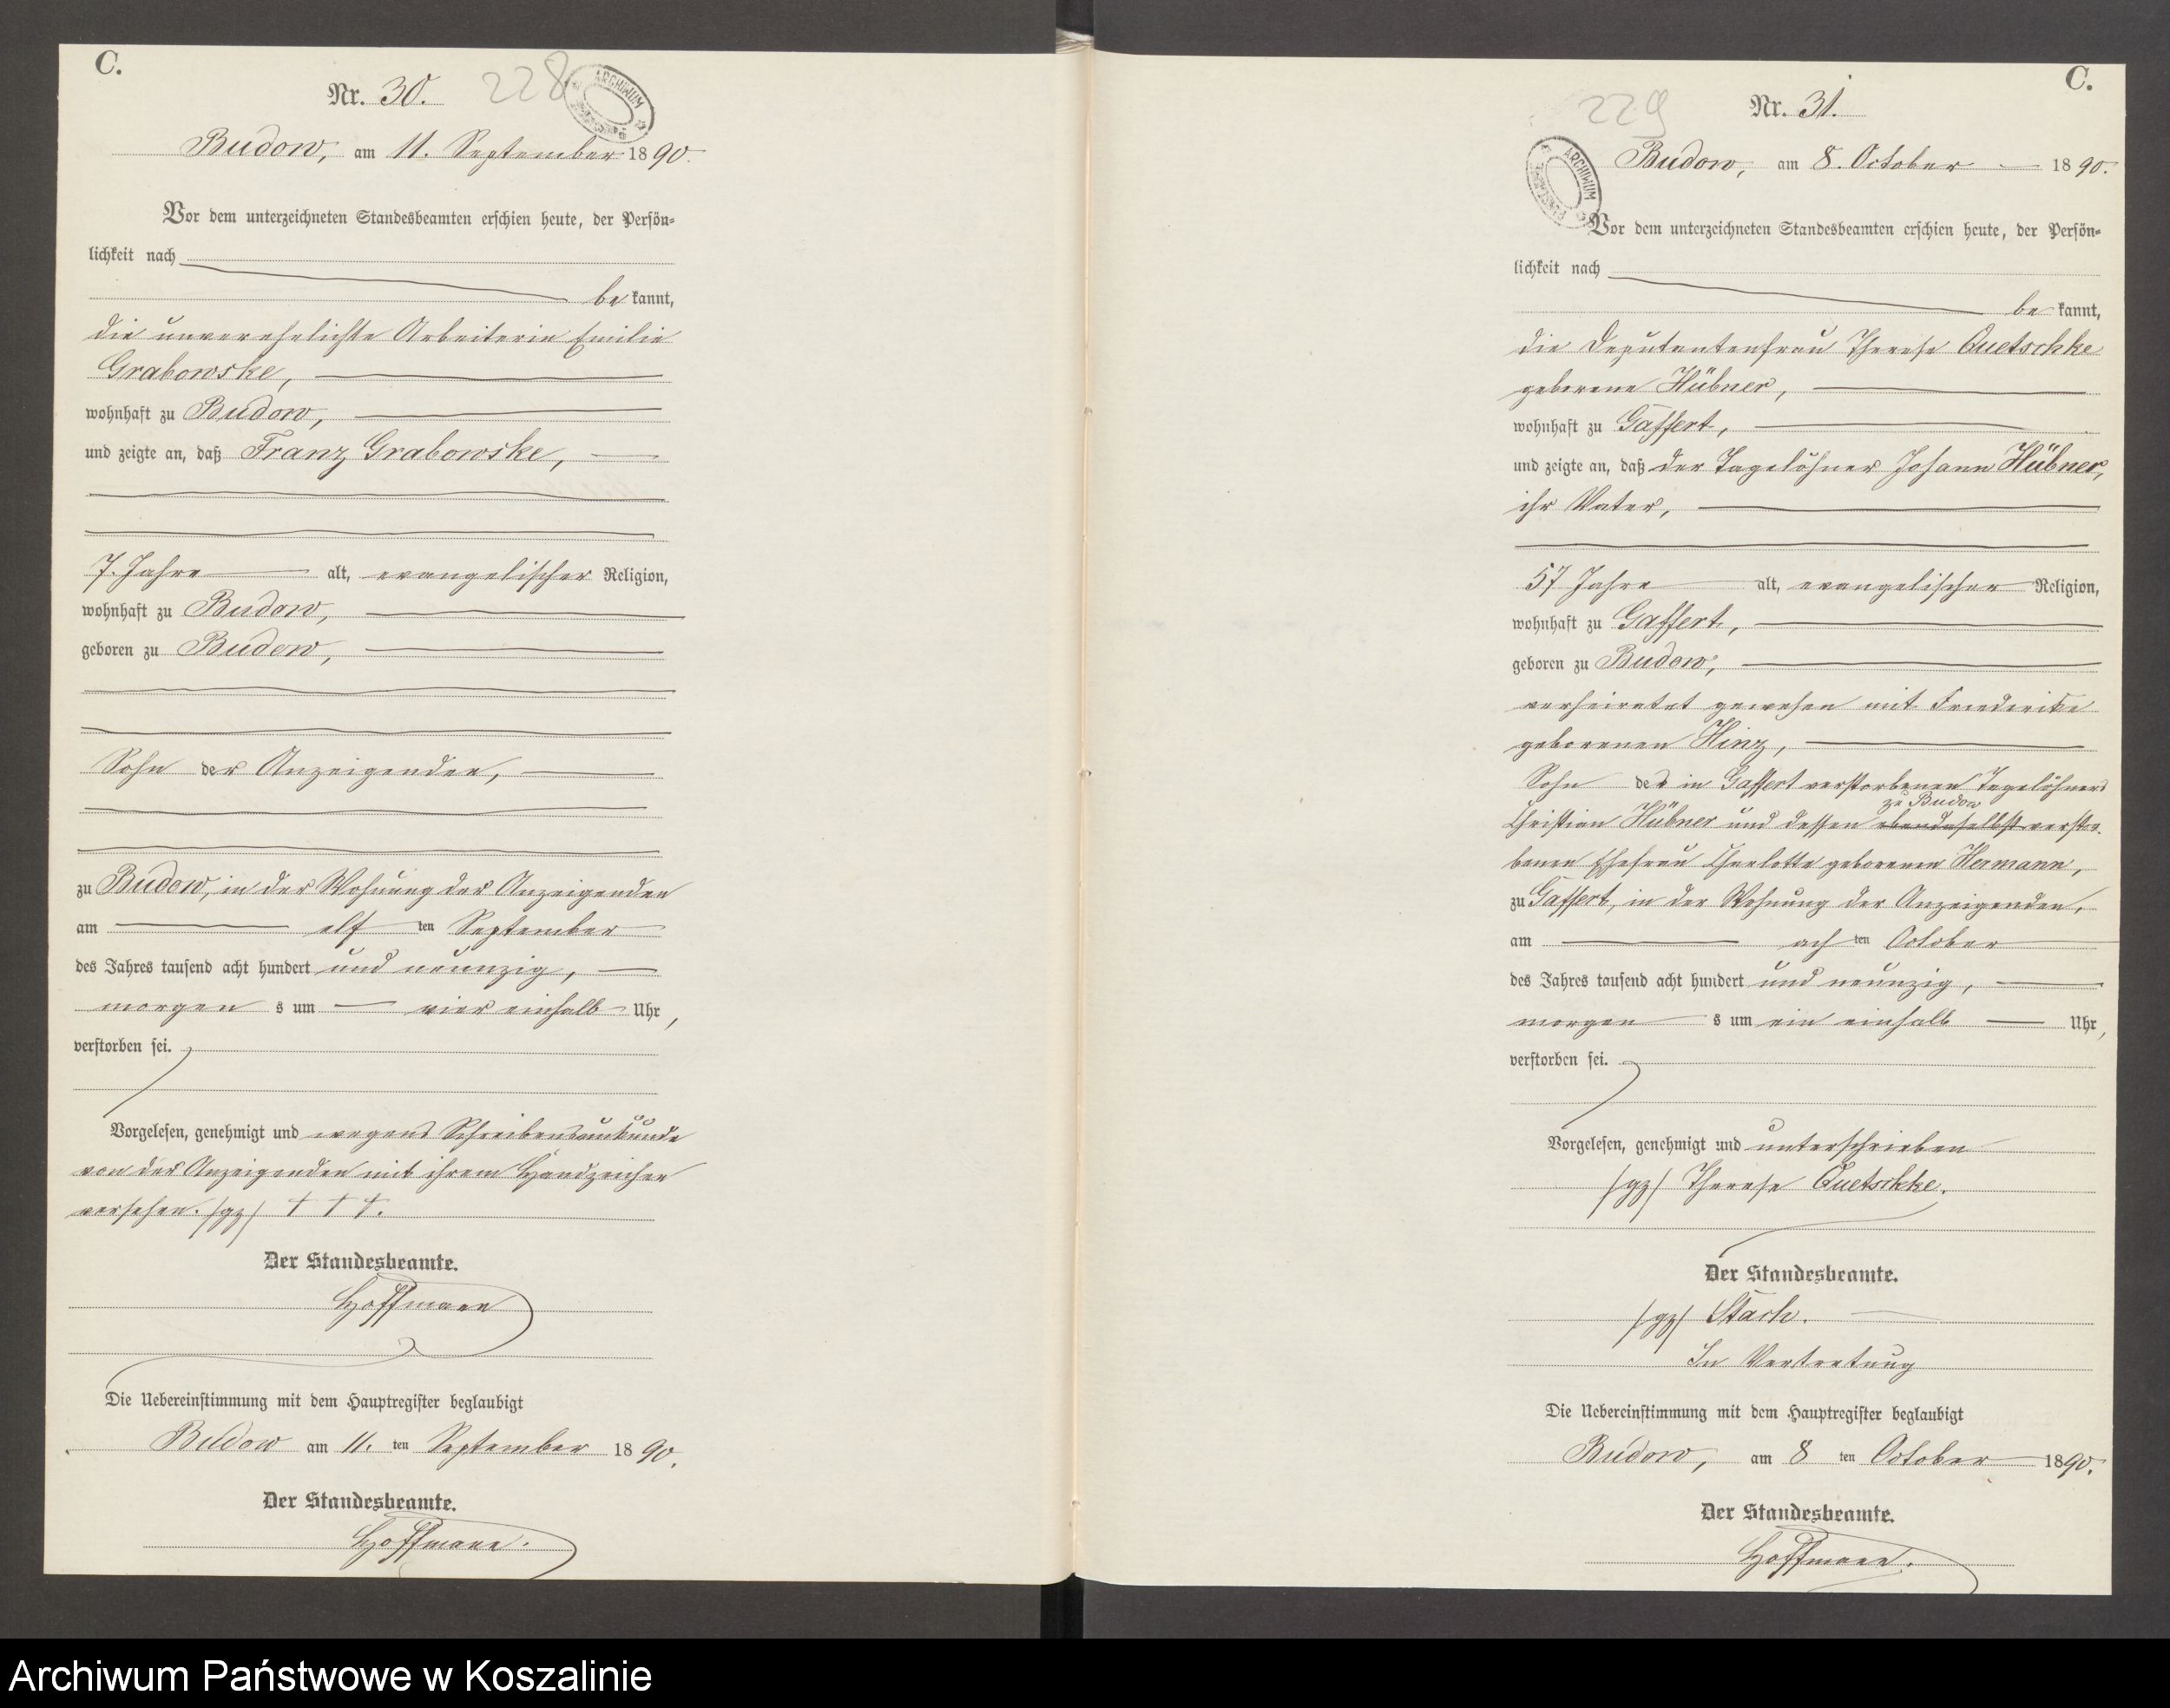 C.
Nr. 30.
228
ARCHIWUM
Budow, am 11. September 1890.
Vor dem unterzeichneten Standesbeamten erschien heute, der Persön-
lichkeit nach
be kannt,
die unverehelichte Arbeiterin Emilie
Grabowske,
wohnhaft zu Budow,
und zeigte an, daß Franz Grabowske,
7. Jahre alt, evangelischer Religion,
wohnhaft zu Budow,
geboren zu Budow,
Sohn der Anzeigenden,
zu Budow, in der Wohnung der Anzeigenden
am elf ten September
des Jahres tausend acht hundert und neunzig,
morgen s um vier einhalb Uhr,
verstorben sei.
Vorgelesen, genehmigt und wegens Schreibensunkunde
von der Anzeigenden mit ihrem Handzeichen
versehen. /gz/ † † †.
Der Standesbeamte.
Hoffmann
Die Uebereinstimmung mit dem Hauptregister beglaubigt
Budow am 11. ten September 1890.
Der Standesbeamte.
Hoffmann.
C.
229
Nr. 31.
ARCHIWUM
Budow, am 8. October 1890.
Vor dem unterzeichneten Standesbeamten erschien heute, der Persön-
lichkeit nach
be kannt,
die Deputantenfrau Therese Quetschke
geborene Hübner,
wohnhaft zu Gaffert,
und zeigte an, daß der Tagelöhner Johann Hübner,
ihr Vater,
57 Jahre alt, evangelischer Religion,
wohnhaft zu Gaffert,
geboren zu Budow,
verheiratet gewesen mit Friederike
geborenen Hinz,
Sohn des in Gaffert verstorbenen Tagelöhners
zu Budow
Christian Hübner und dessen ebendaselbst verstor-
benen Ehefrau Charlotte geborenen Hermann,
zu Gaffert, in der Wohnung der Anzeigenden,
am ach ten October
des Jahres tausend acht hundert und neunzig,
morgen s um ein einhalb Uhr,
verstorben sei.
Vorgelesen, genehmigt und unterschrieben
/gz/ Therese Quetschke.
Der Standesbeamte.
/gz/ Stach.
In Vertretung
Die Uebereinstimmung mit dem Hauptregister beglaubigt
Budow, am 8 ten October 1890.
Der Standesbeamte.
Hoffmann.
Archiwum Państwowe w Koszalinie